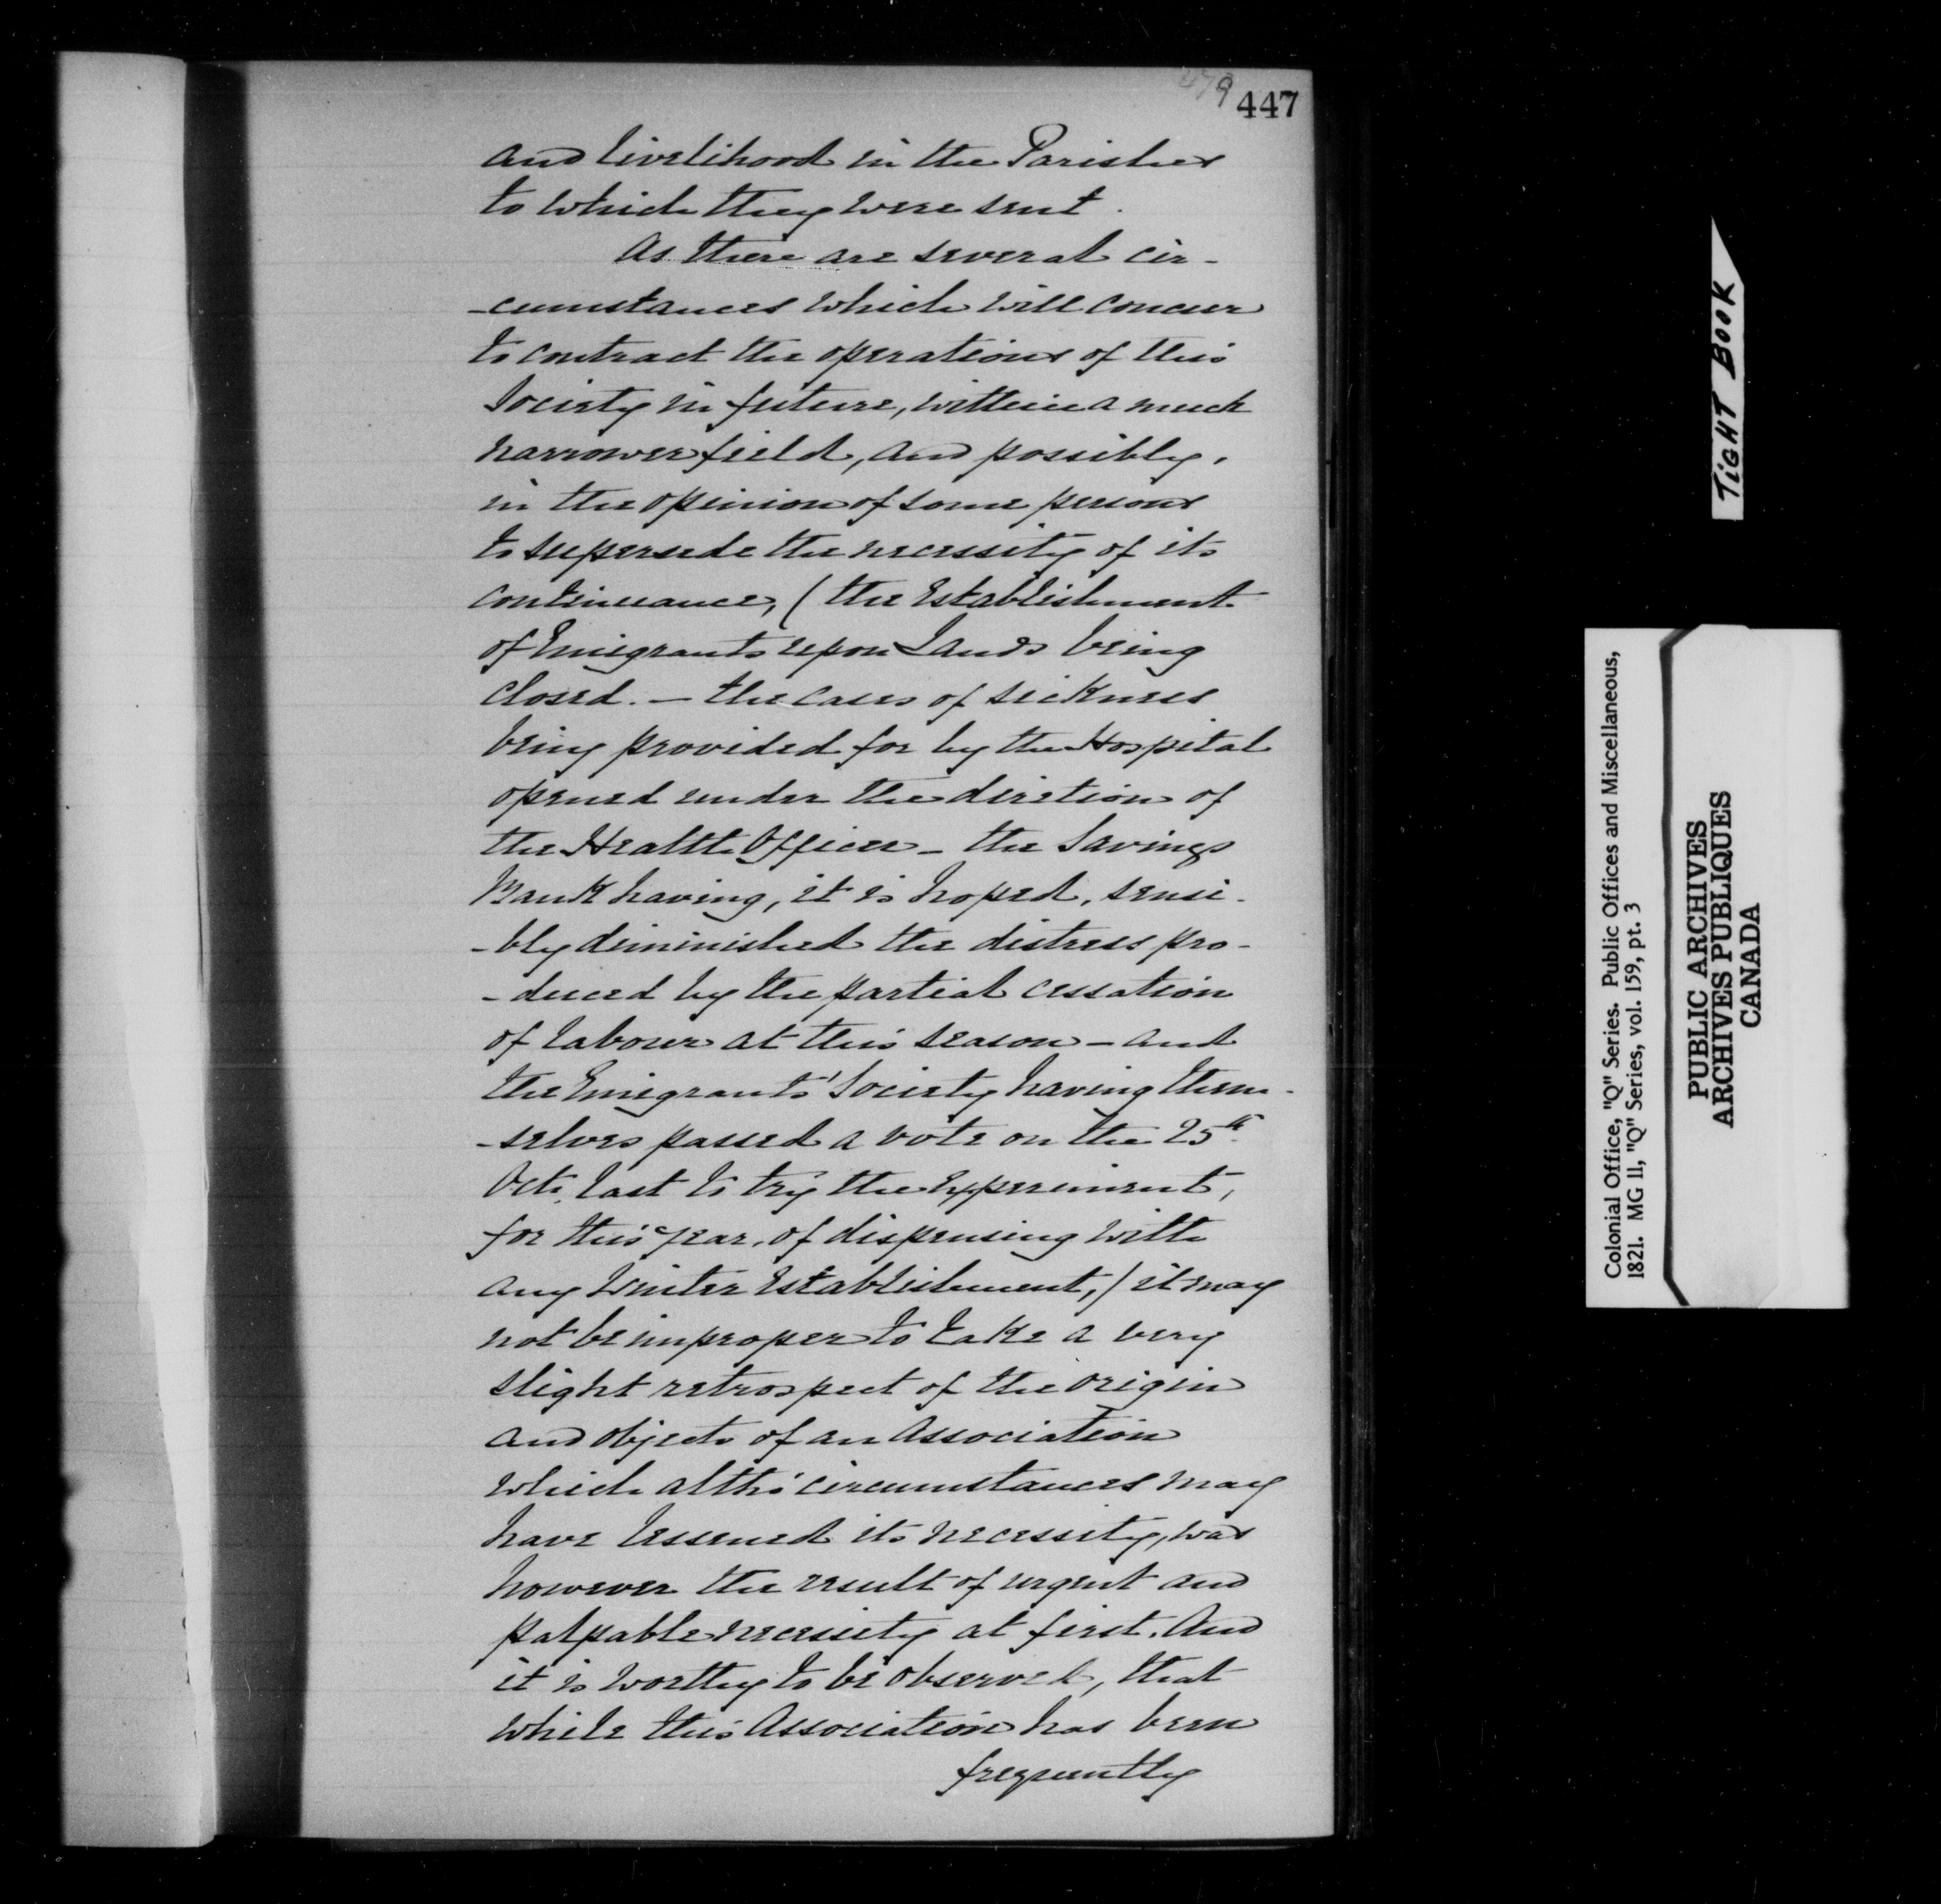 479 447
and livelihood in the Parishes
to which they were sent.
As there are several cir-
-cumstances which will concur
to contract the operations of this
Society in future, within a much
narrower field, and possibly,
in the opinion of some persons
to supersede the necessity of its
continuance, (the Establishment
of Emigrants upon Lands being
closed. – the cases of sickness
being provided for by the Hospital
opened under the diretion of
the Health Officer – the Savings
Bank having, it is hoped, sensi-
-bly diminished the distress pro-
-duced by the partial cessation
of labour at this season – and
the Emigrants' Society having them-
-selves passed a vote on the 25th
Octr. last to try the Experiment,
for this year, of dispensing with
any Winter Establishment,) it may
not be improper to take a very
slight retrospect of the origin
and objects of an Association
which altho' circumstances may
have lessened its necessity, was
however the result of urgent and
palpable necessity at first. And
it is worthy to be observed, that
while this Association has been
frequently
TiGHT BOOK
Colonial Office, "Q" Series. Public Offices and Miscellaneous,
1821. MG 11, "Q" Series, vol. 159, pt. 3
PUBLIC ARCHIVES
ARCHIVES PUBLIQUES
CANADA